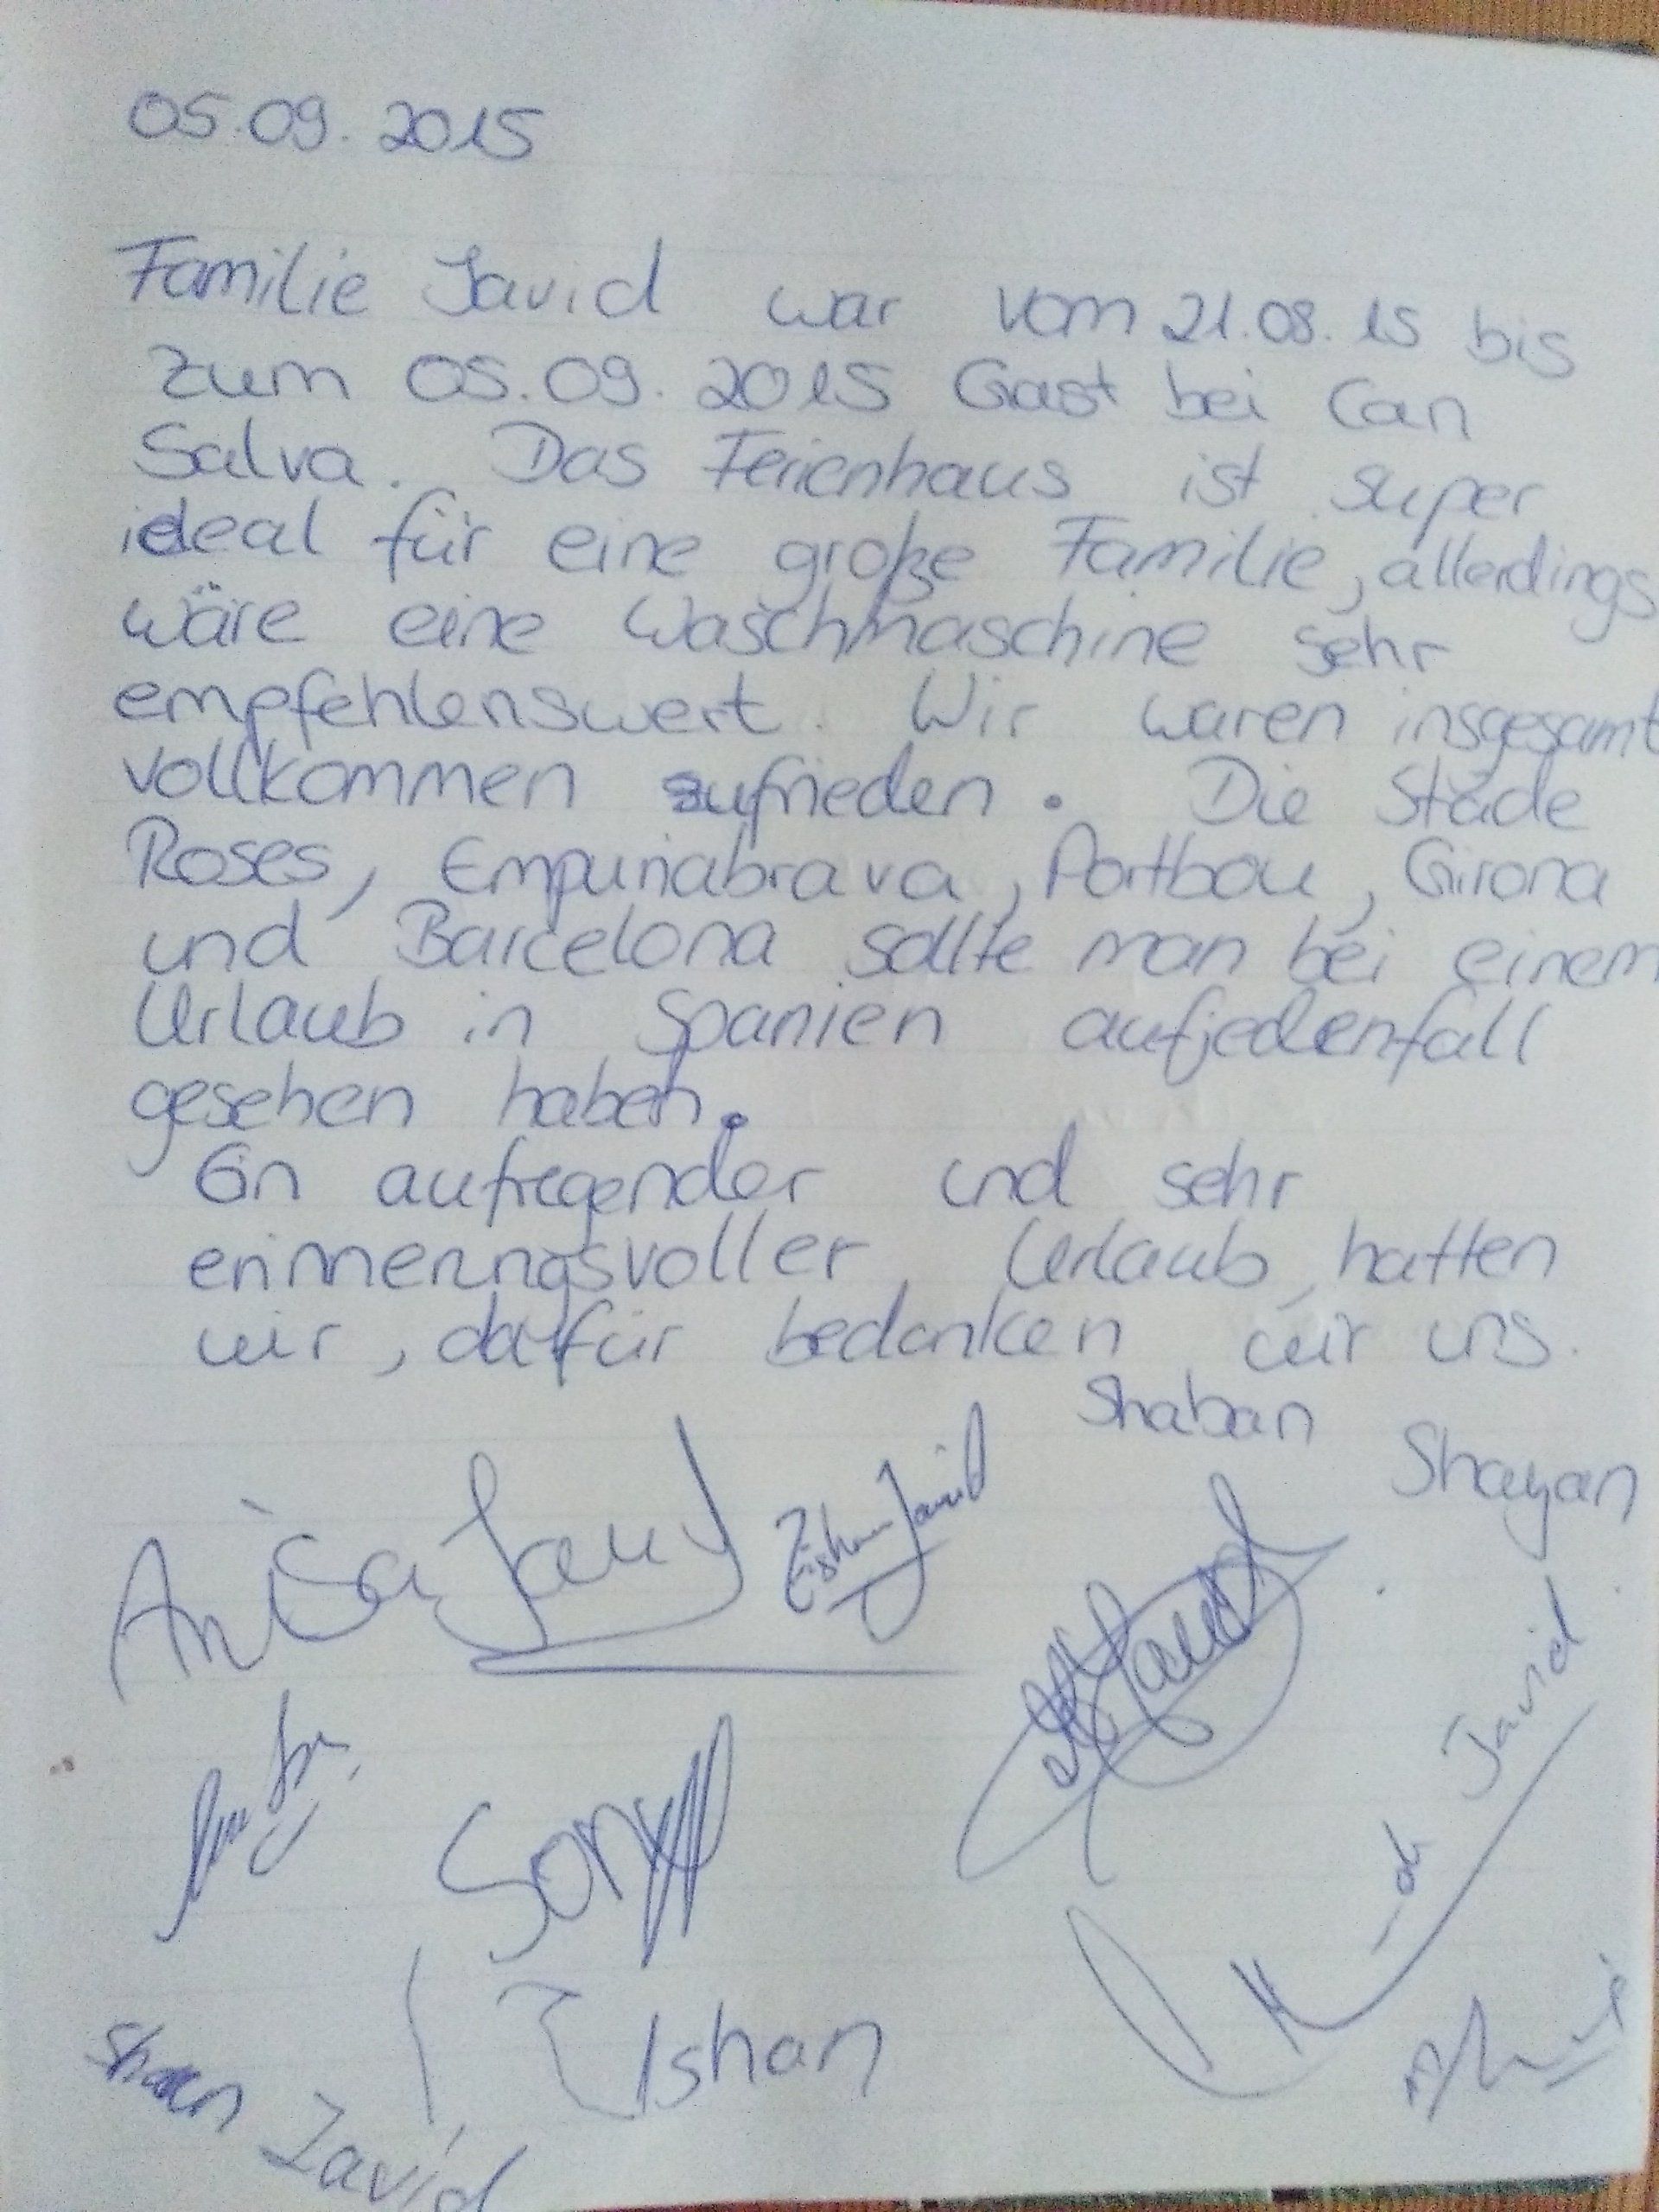 05.09.2015
Familie Javid war vom 21.08.15 bis
zum 05.09.2015 Gast bei Can
Salva. Das Ferienhaus ist super
ideal für eine große Familie, allerdings
wäre eine Waschmaschine sehr
empfehlenswert. Wir waren insgesamt
vollkommen zufrieden. Die Städe
Roses, Empuriabrava, Portbou, Girona
und Barcelona sollte man bei einem
Urlaub in Spanien aufjedenfall
gesehen haben.
Ein aufregender und sehr
erinnerungsvoller Urlaub hatten
wir, dafür bedanken wir uns.
Shaban
Shayan
Anisa Javid
Zishan Javid
Javid
Javid
Sony
Ishan
Javid